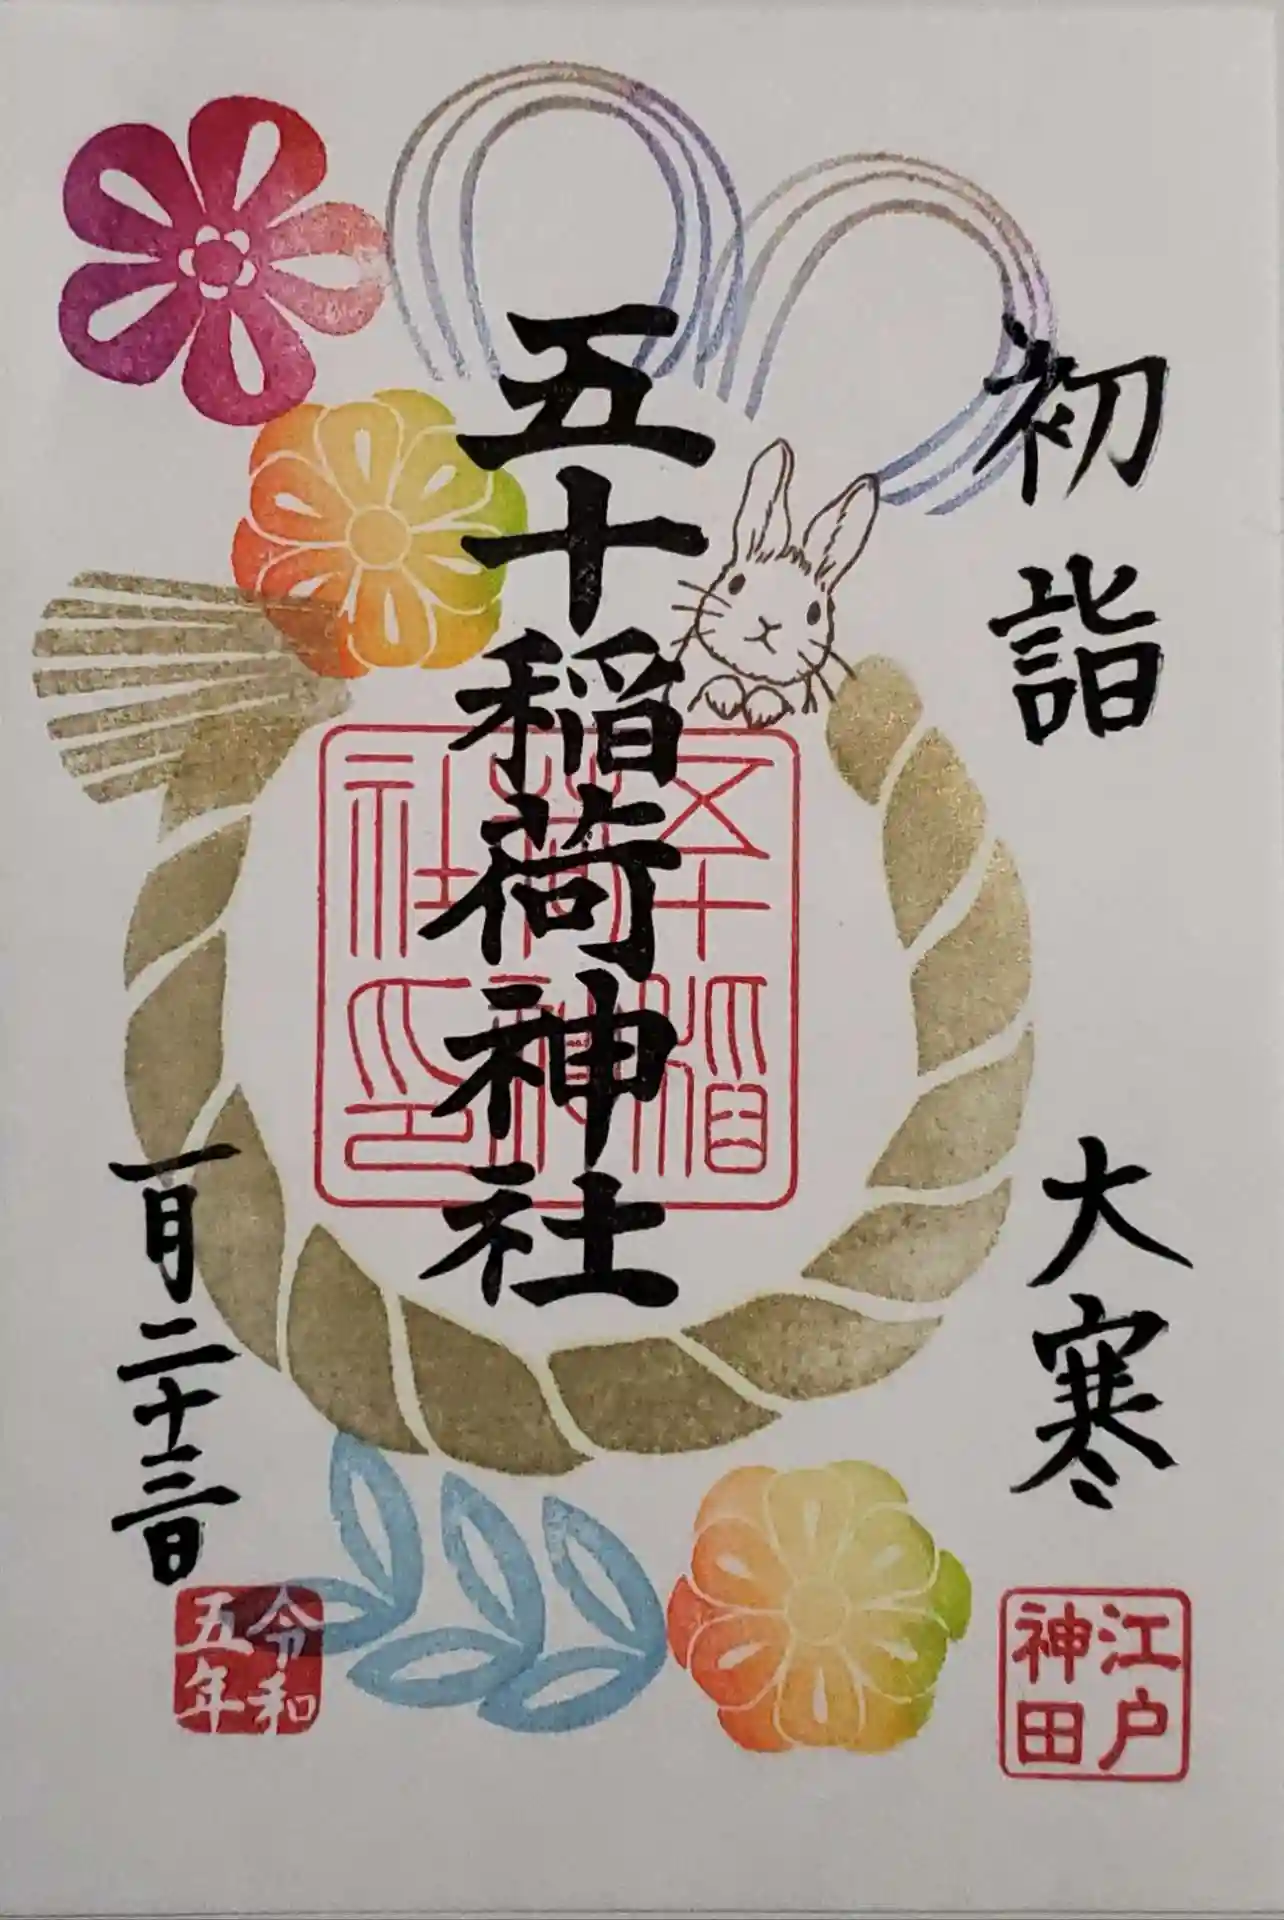 初詣
大寒
江戸
神田
五十稲荷神社
五十稲
荷神
社印
一月二十三日
令和
五年